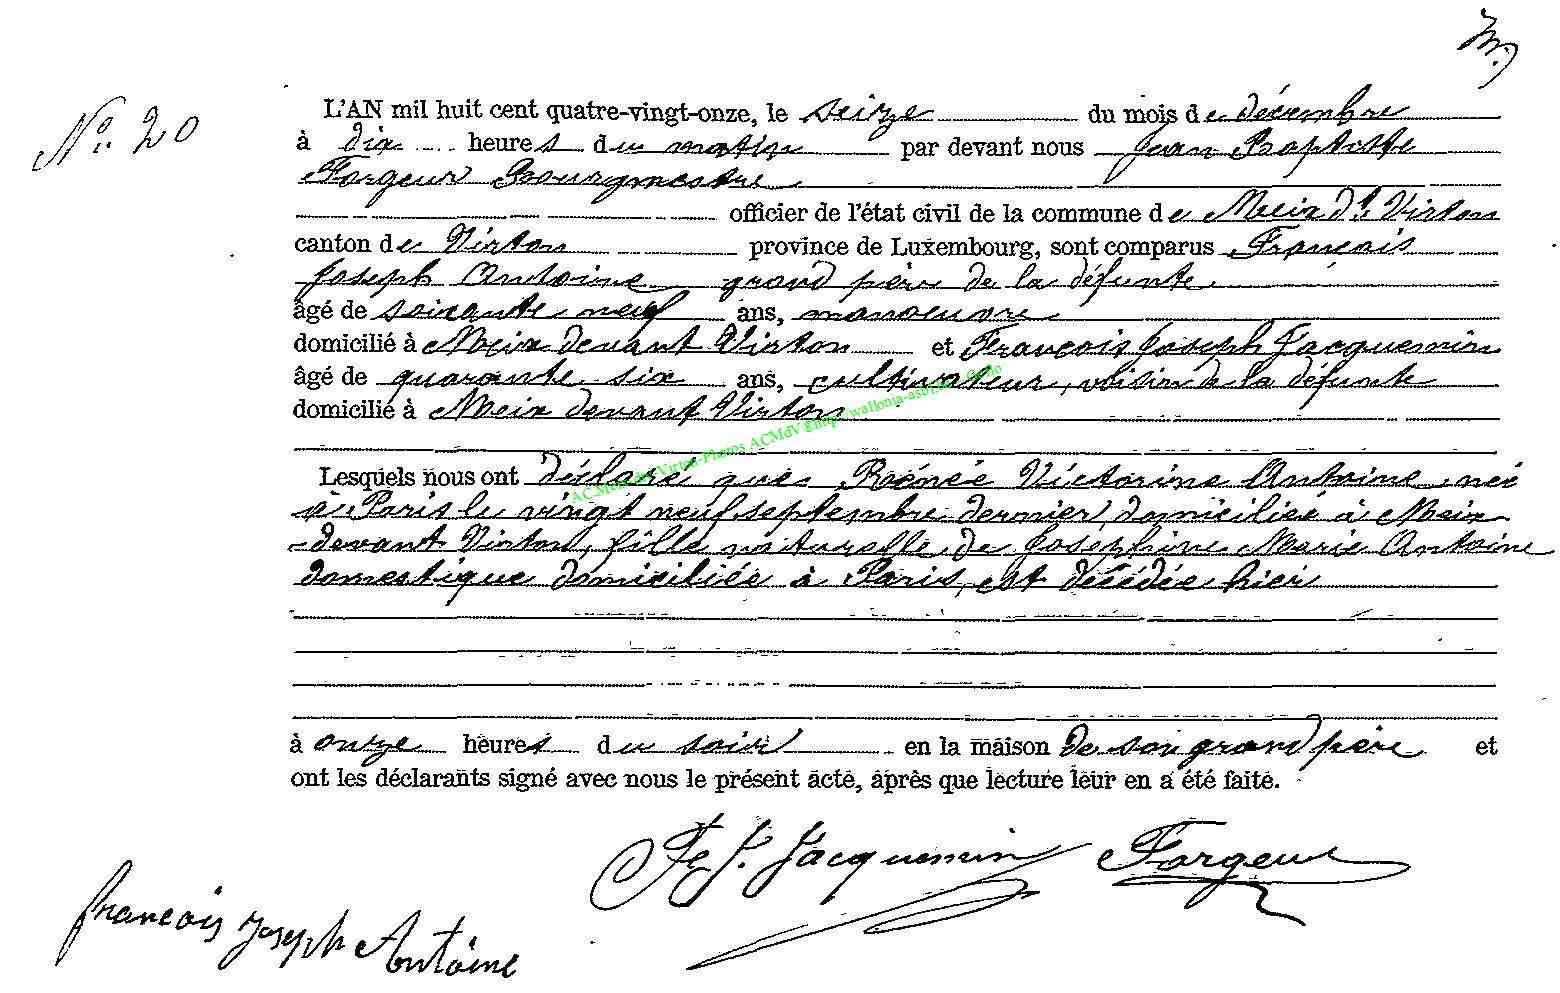 N° 20
L'AN mil huit cent quatre-vingt-onze, le seize du mois de décembre
à dix heures du matin par devant nous Jean Baptiste
Forgeur Bourgmestre
officier de l'état civil de la commune de Meix dt Virton
canton de Virton province de Luxembourg, sont comparus François
Joseph Antoine grand père de la défunte
âgé de soixante neuf ans, manoeuvre
domicilié à Meix devant Virton et François Joseph Jacquemin
âgé de quarante six ans, cultivateur, voisin de la défunte
domicilié à Meix devant Virton
Lesquels nous ont déclaré que Rénée Victorine Antoine née
à Paris le vingt neuf septembre dernier, domiciliée à Meix-
-devant Virton, fille naturelle de Joséphine Marie Antoine
domestique domiciliée à Paris, est décédée hier
à onze heures du soir en la maison de son grand père et
ont les déclarants signé avec nous le présent acte, après que lecture leur en a été faite.
Fs J. Jacquemin Forgeur
francois Joseph Antoine